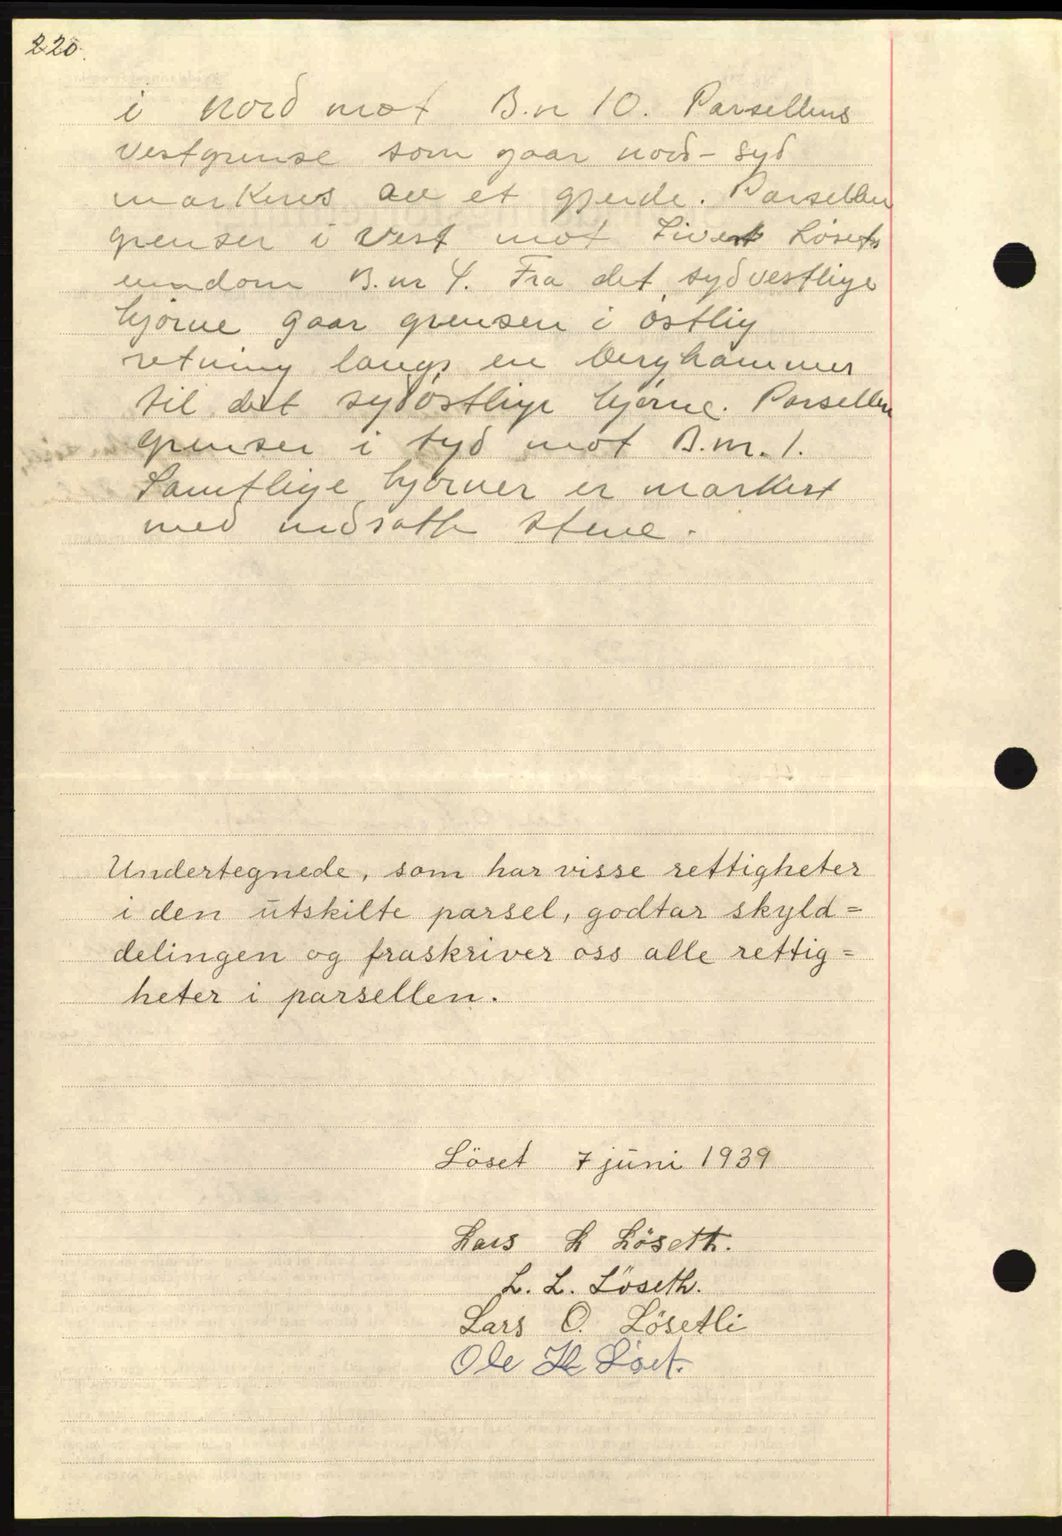 220.
i nord mot B.n 10. Parsellens
vestgrense som gaar nord-syd
markeres av et gjerde. Parsellen
grenser i vest mot Sivert Løsets
eiendom B.nr 4. Fra det sydvestlige
hjørne gaar grensen i østlig
retning langs en berghammer
til det sydøstlige hjørne. Parsellen
grenser i syd mot B.nr. 1.
Samtlige hjørner er markert
med nedsatte stene.
Undertegnede, som har visse rettigheter
i den utskilte parsel, godtar skyld=
delingen og fraskriver oss alle rettig=
heter i parsellen.
Löset 7 juni 1939
Lars L Löseth.
L. L. Löseth.
Lars O. Lösetli
Ole H Löset.